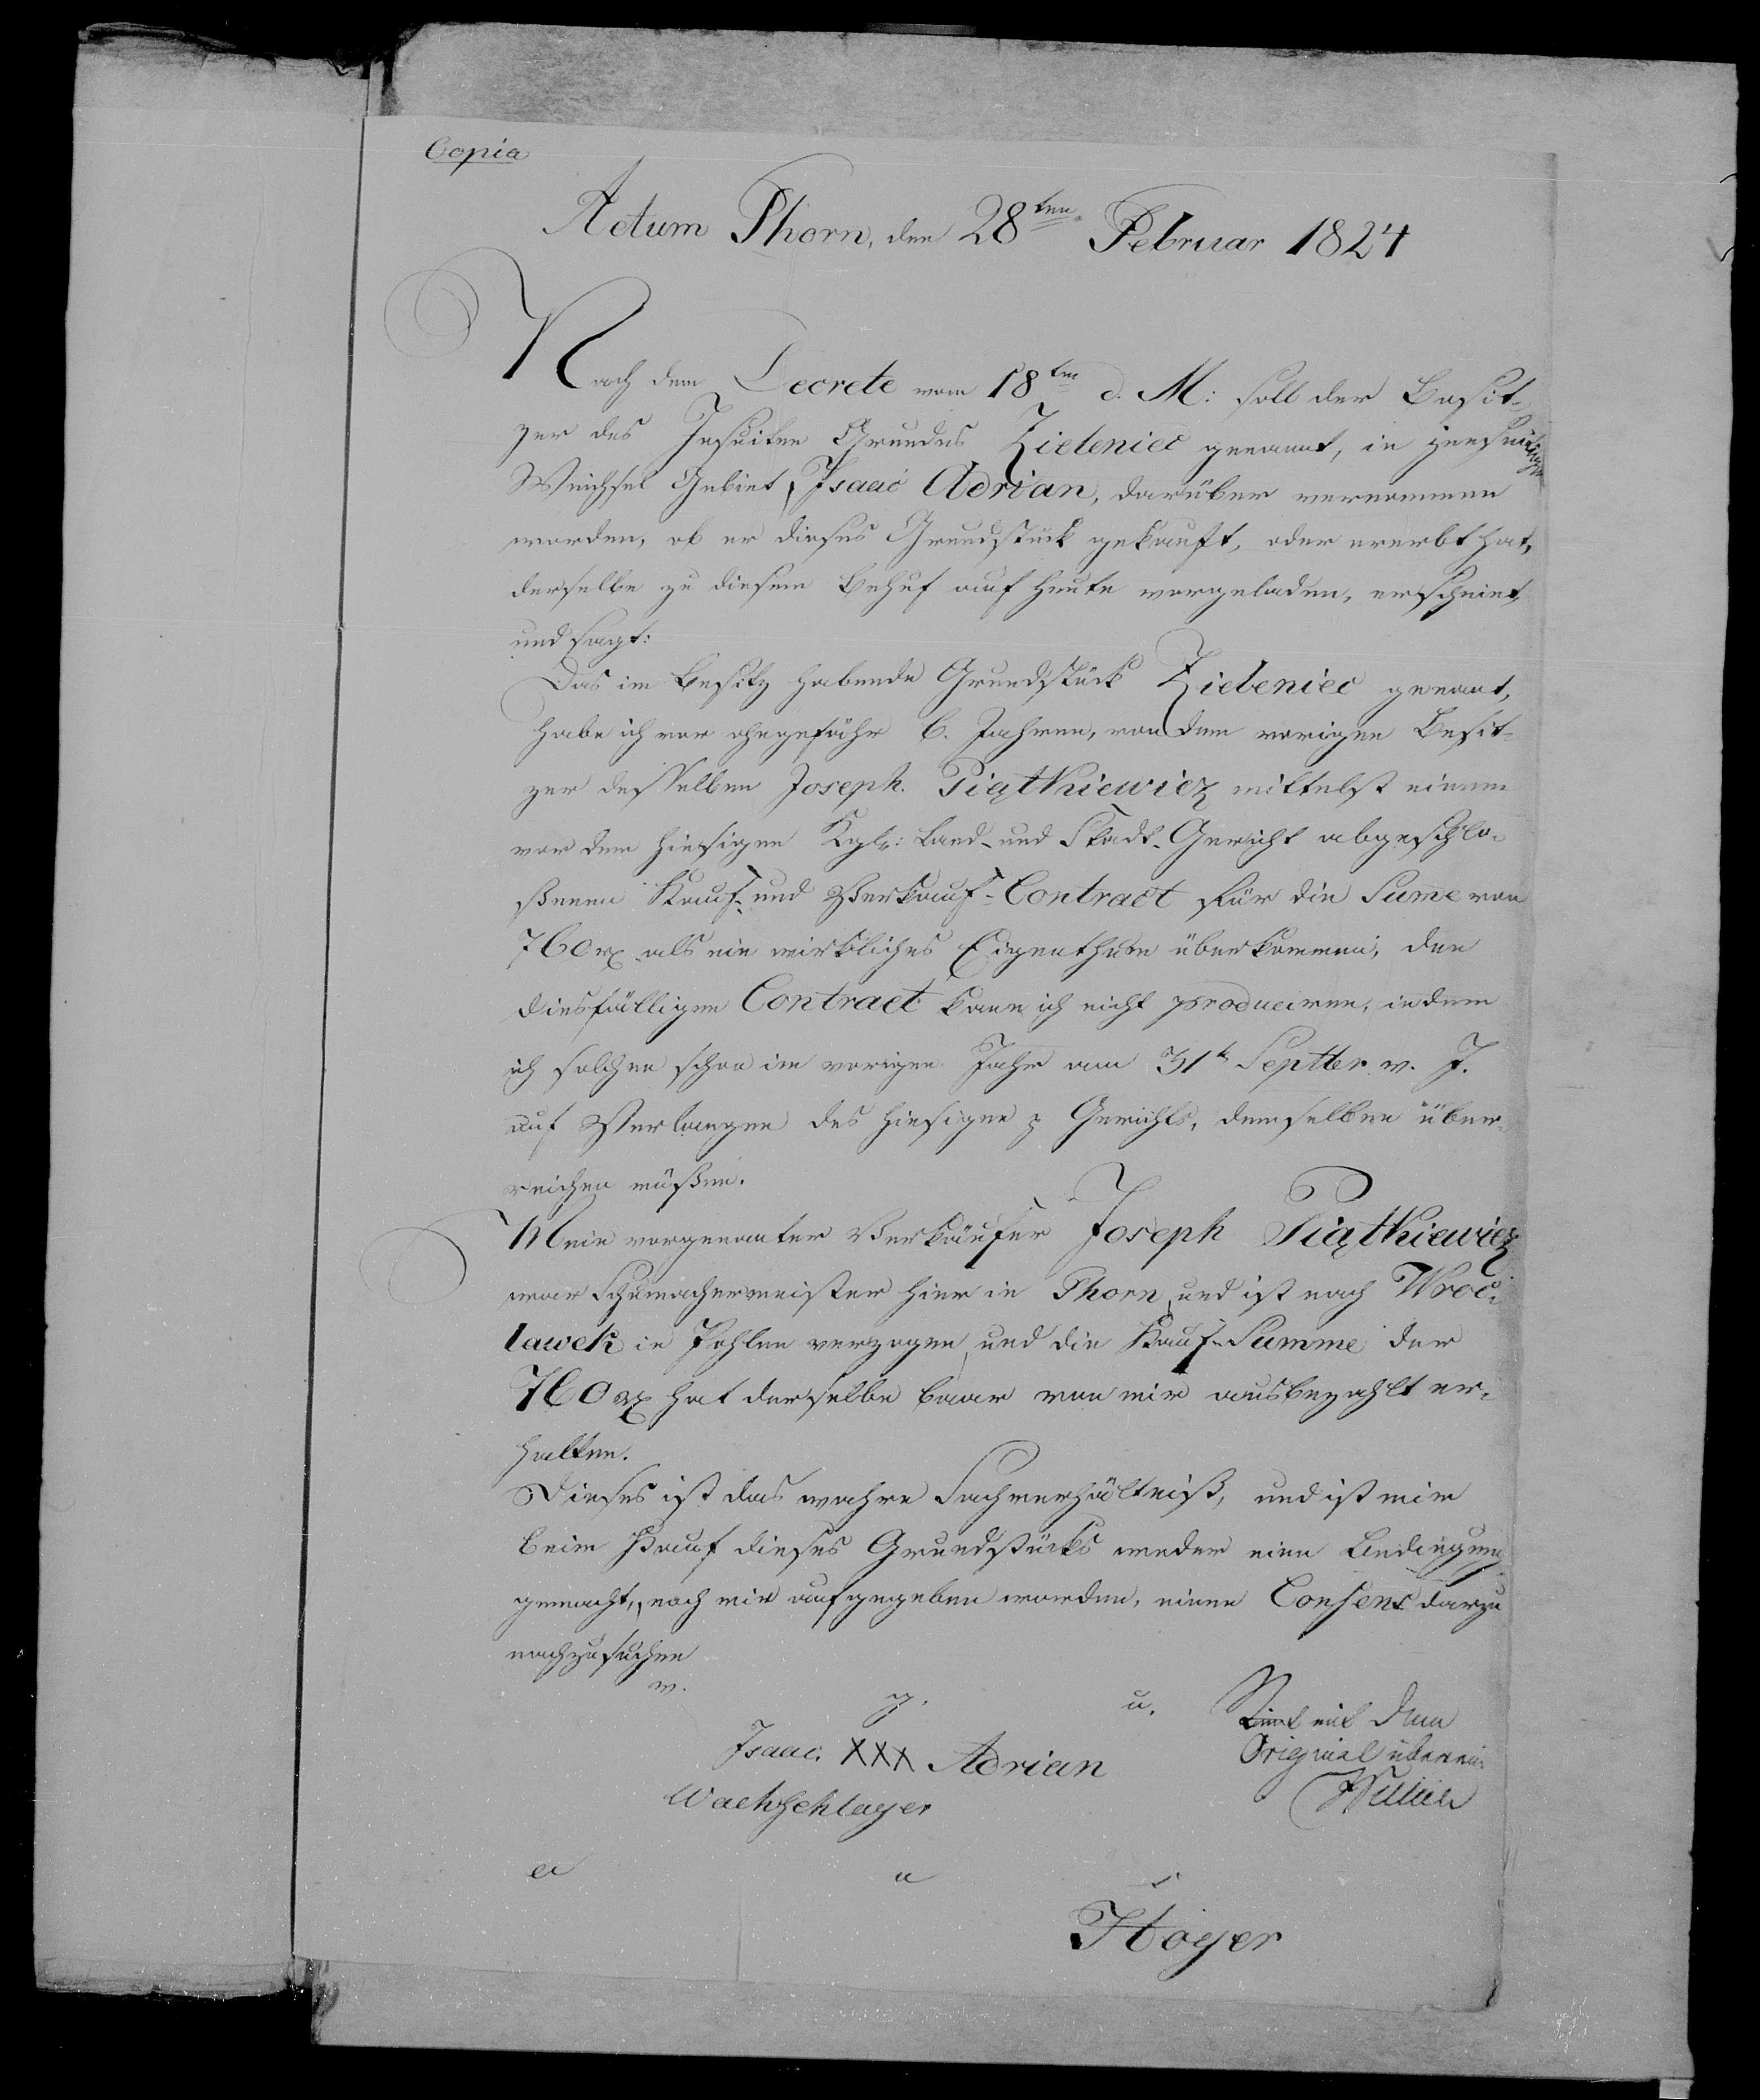 Copia
Actum Thorn, den 28ten Februar 1824
Nach dem Decrete vom 18ten d. M: soll der Besit-
zer des Jesuiten Grundes Zieleniec genannt, in jenseitigen
Weichsel Gebiet, Isaac Adrian, darüber vernommen
worden, ob er dieses Grundstück gekauft, oder ererbt hat,
derselbe zu diesem Behuf auf heute vorgeladen, erscheint,
und sagt:
Das im Besitz habende Grundstück Zieleniec genant,
habe ich vor ohngefähr 6. Jahren, von dem vorigen Besit-
zer desselben Joseph Piątkiewicz mittelst einem
vor dem hiesigen Kgle: Land- und Stadt-Gericht abgeschlo-
ßenen Kauf- und Verkauf-Contract für die Sume von
760 rx als ein wirkliches Eigenthum überkommen, den
diesfälligen Contract kann ich nicht produciren, indem
ich solchen schon im vorigen Jahr am 31t Septbr. v. J.
auf Verlangen des hiesigen p Gerichts, demselben über-
reichen müßen.
Mein vorgenanter Verkäufer Joseph Piątkiewicz
war Schumachermeister hier in Thorn, und ist nach Wroc-
lawek in Pohlen verzogen, und die Kauf-Summe der
760 rx hat derselbe baar von mir ausbezahlt er-
halten.
Dieses ist das wahre Sachverhältniß, und ist mir
beim Kauf dieses Grundstücks weder eine Bedingung
gemacht, noch mir aufgegeben worden, einen Consens darzu
nachzusuchen
v. g. u.
Isaac XXX Adrian
Wachschlager
Stimt mit dem
Original überein
a u s
Hoyer